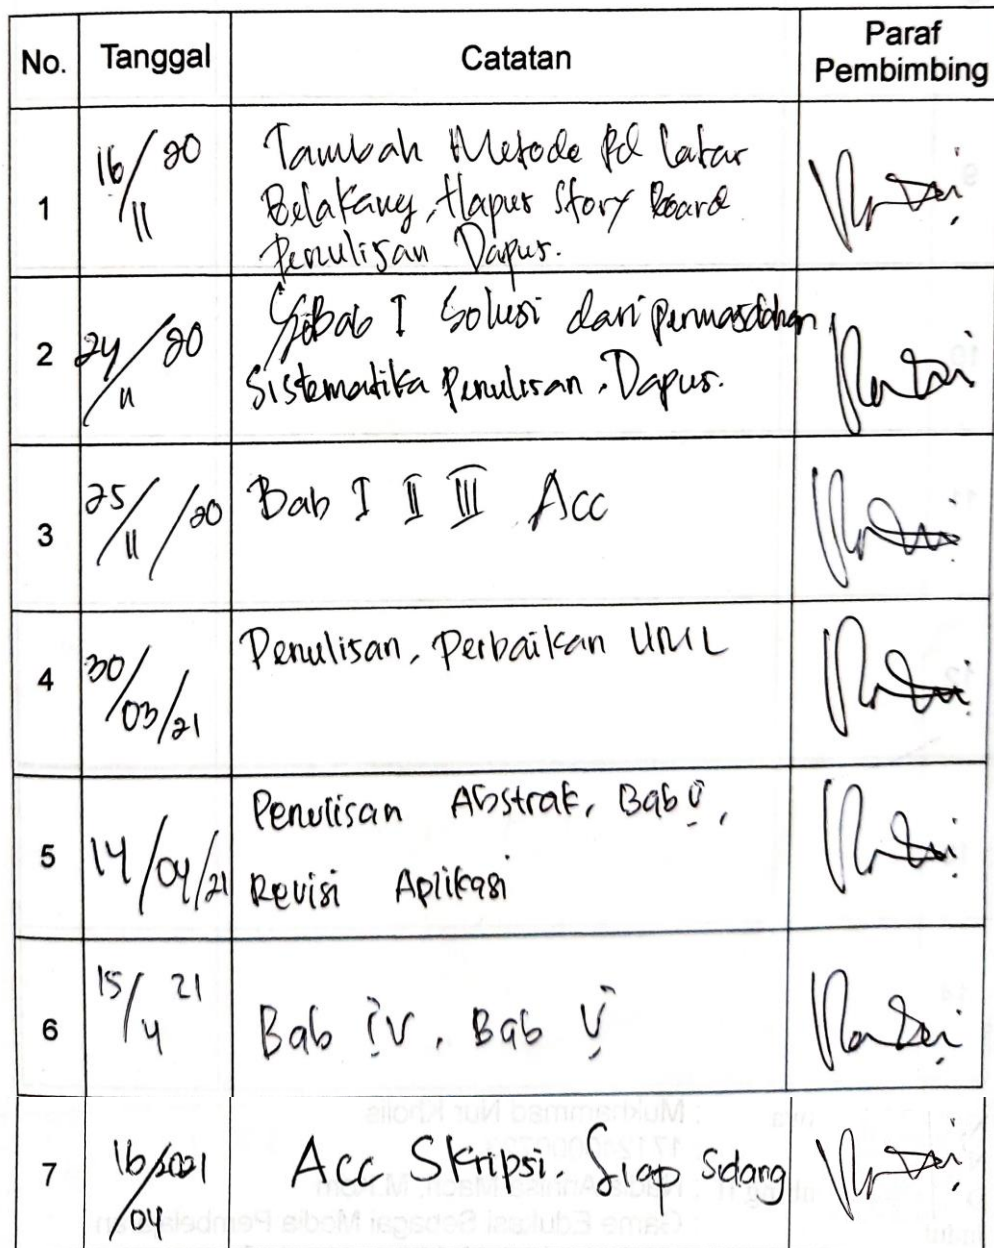 No. Tanggal Catatan Paraf Pembimbing
1 16/11 20 Tambah Metode Pd Latar
Belakang, Hapus Story Board
Penulisan Dapus.
2 24/11/20 Bab I Solusi dari permasalahan,
Sistematika Penulisan, Dapus.
3 25/11/20 Bab I II III Acc
4 30/03/21 Penulisan, Perbaikan UML
5 14/04/21 Penulisan Abstrak, Bab V,
Revisi Aplikasi
6 15/4 21 Bab IV, Bab V
7 16/04 2021 Acc Skripsi. Siap Sidang
: Mukhammad Nur Kholis
Game Edukasi Sebagai Media Pembelajaran